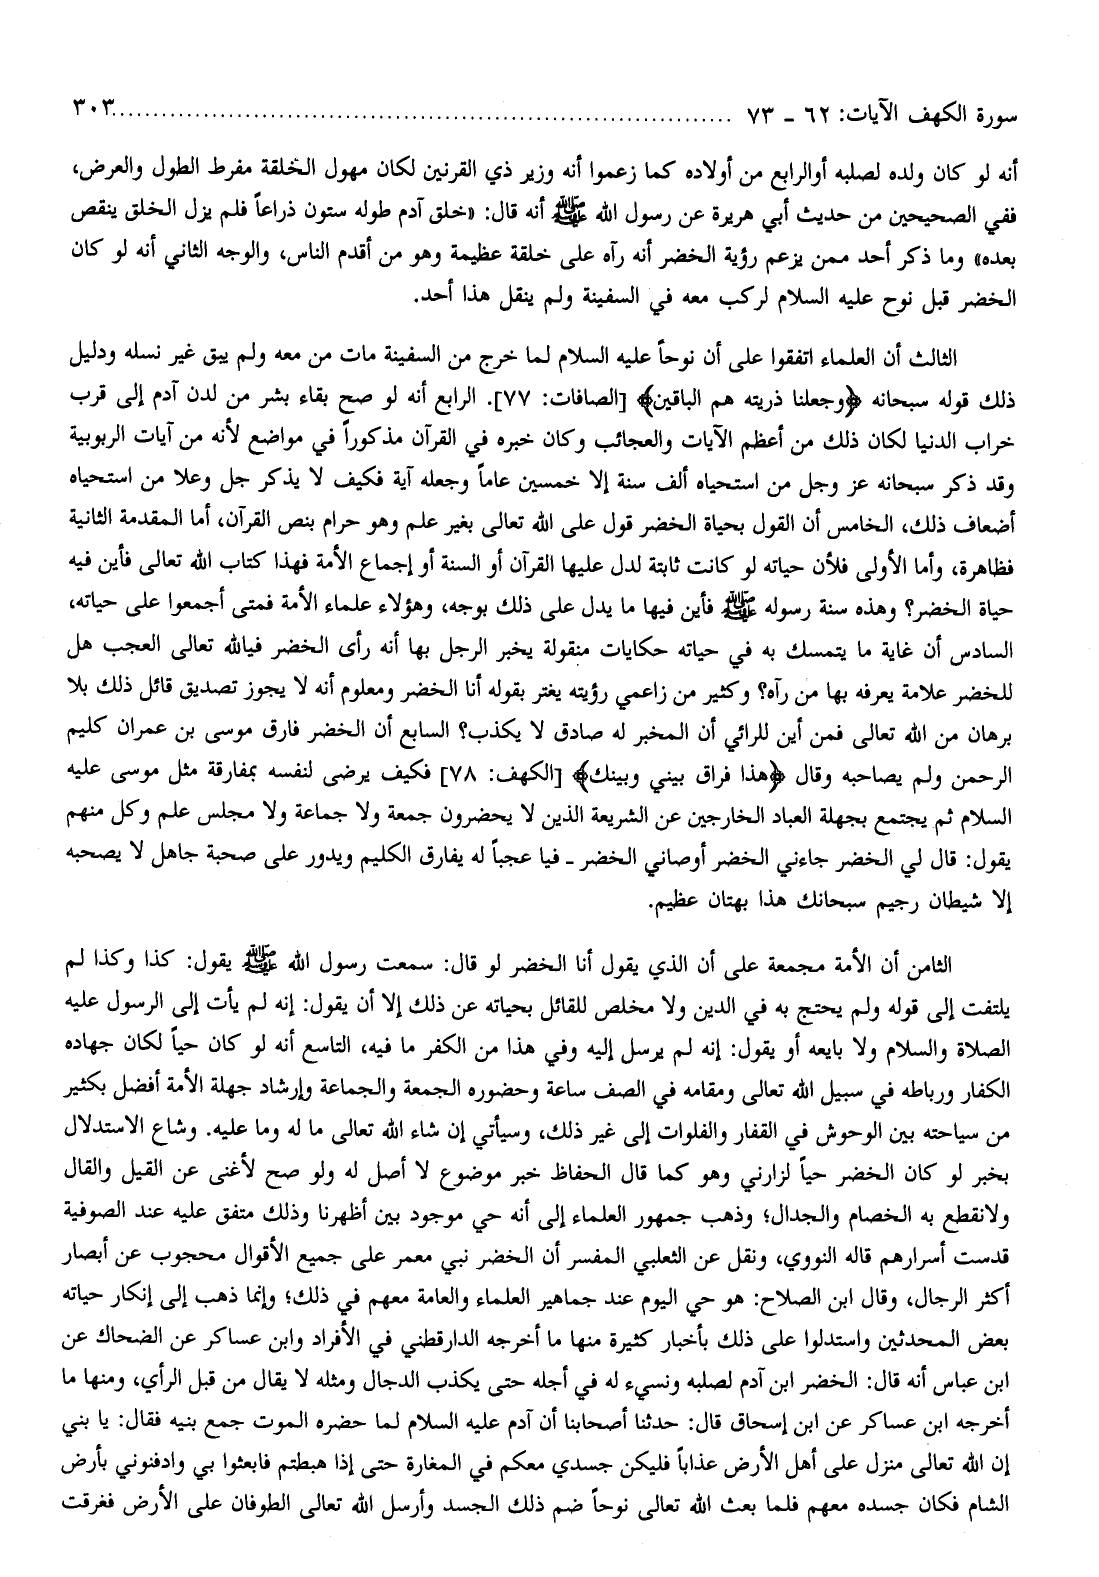 سورة الكهف الآيات: ٦٢ ـ ٧٣ ........................................................................... ٣٠٣
أنه لو كان ولده لصلبه أوالرابع من أولاده كما زعموا أنه وزير ذي القرنين لكان مهول الخلقة مفرط الطول والعرض،
ففي الصحيحين من حديث أبي هريرة عن رسول الله ﷺ أنه قال: «خلق آدم طوله ستون ذراعاً فلم يزل الخلق ينقص
بعده» وما ذكر أحد ممن يزعم رؤية الخضر أنه رآه على خلقة عظيمة وهو من أقدم الناس، والوجه الثاني أنه لو كان
الخضر قبل نوح عليه السلام لركب معه في السفينة ولم ينقل هذا أحد.
الثالث أن العلماء اتفقوا على أن نوحاً عليه السلام لما خرج من السفينة مات من معه ولم يبق غير نسله ودليل
ذلك قوله سبحانه ﴿وجعلنا ذريته هم الباقين﴾ [الصافات: ٧٧]. الرابع أنه لو صح بقاء بشر من لدن آدم إلى قرب
خراب الدنيا لكان ذلك من أعظم الآيات والعجائب وكان خبره في القرآن مذكوراً في مواضع لأنه من آيات الربوبية
وقد ذكر سبحانه عز وجل من استحياه ألف سنة إلا خمسين عاماً وجعله آية فكيف لا يذكر جل وعلا من استحياه
أضعاف ذلك، الخامس أن القول بحياة الخضر قول على الله تعالى بغير علم وهو حرام بنص القرآن، أما المقدمة الثانية
فظاهرة، وأما الأولى فلأن حياته لو كانت ثابتة لدل عليها القرآن أو السنة أو إجماع الأمة فهذا كتاب الله تعالى فأين فيه
حياة الخضر؟ وهذه سنة رسوله ﷺ فأين فيها ما يدل على ذلك بوجه، وهؤلاء علماء الأمة فمتى أجمعوا على حياته،
السادس أن غاية ما يتمسك به في حياته حكايات منقولة يخبر الرجل بها أنه رأى الخضر فيالله تعالى العجب هل
للخضر علامة يعرفه بها من رآه؟ وكثير من زاعمي رؤيته يغتر بقوله أنا الخضر ومعلوم أنه لا يجوز تصديق قائل ذلك بلا
برهان من الله تعالى فمن أين للرائي أن المخبر له صادق لا يكذب؟ السابع أن الخضر فارق موسى بن عمران كليم
الرحمن ولم يصاحبه وقال ﴿هذا فراق بيني وبينك﴾ [الكهف: ٧٨] فكيف يرضى لنفسه بمفارقة مثل موسى عليه
السلام ثم يجتمع بجهلة العباد الخارجين عن الشريعة الذين لا يحضرون جمعة ولا جماعة ولا مجلس علم وكل منهم
يقول: قال لي الخضر جاءني الخضر أوصاني الخضر ـ فيا عجباً له يفارق الكليم ويدور على صحبة جاهل لا يصحبه
إلا شيطان رجيم سبحانك هذا بهتان عظيم.
الثامن أن الأمة مجمعة على أن الذي يقول أنا الخضر لو قال: سمعت رسول الله ﷺ يقول: كذا وكذا لم
يلتفت إلى قوله ولم يحتج به في الدين ولا مخلص للقائل بحياته عن ذلك إلا أن يقول: إنه لم يأت إلى الرسول عليه
الصلاة والسلام ولا بايعه أو يقول: إنه لم يرسل إليه وفي هذا من الكفر ما فيه، التاسع أنه لو كان حياً لكان جهاده
الكفار ورباطه في سبيل الله تعالى ومقامه في الصف ساعة وحضوره الجمعة والجماعة وإرشاد جهلة الأمة أفضل بكثير
من سياحته بين الوحوش في القفار والفلوات إلى غير ذلك، وسيأتي إن شاء الله تعالى ما له وما عليه. وشاع الاستدلال
بخبر لو كان الخضر حياً لزارني وهو كما قال الحفاظ خبر موضوع لا أصل له ولو صح لأغنى عن القيل والقال
ولانقطع به الخصام والجدال؛ وذهب جمهور العلماء إلى أنه حي موجود بين أظهرنا وذلك متفق عليه عند الصوفية
قدست أسرارهم قاله النووي، ونقل عن الثعلبي المفسر أن الخضر نبي معمر على جميع الأقوال محجوب عن أبصار
أكثر الرجال، وقال ابن الصلاح: هو حي اليوم عند جماهير العلماء والعامة معهم في ذلك؛ وإنما ذهب إلى إنكار حياته
بعض المحدثين واستدلوا على ذلك بأخبار كثيرة منها ما أخرجه الدارقطني في الأفراد وابن عساكر عن الضحاك عن
ابن عباس أنه قال: الخضر ابن آدم لصلبه ونسيء له في أجله حتى يكذب الدجال ومثله لا يقال من قبل الرأي، ومنها ما
أخرجه ابن عساكر عن ابن إسحاق قال: حدثنا أصحابنا أن آدم عليه السلام لما حضره الموت جمع بنيه فقال: يا بني
إن الله تعالى منزل على أهل الأرض عذاباً فليكن جسدي معكم في المغارة حتى إذا هبطتم فابعثوا بي وادفنوني بأرض
الشام فكان جسده معهم فلما بعث الله تعالى نوحاً ضم ذلك الجسد وأرسل الله تعالى الطوفان على الأرض فغرقت